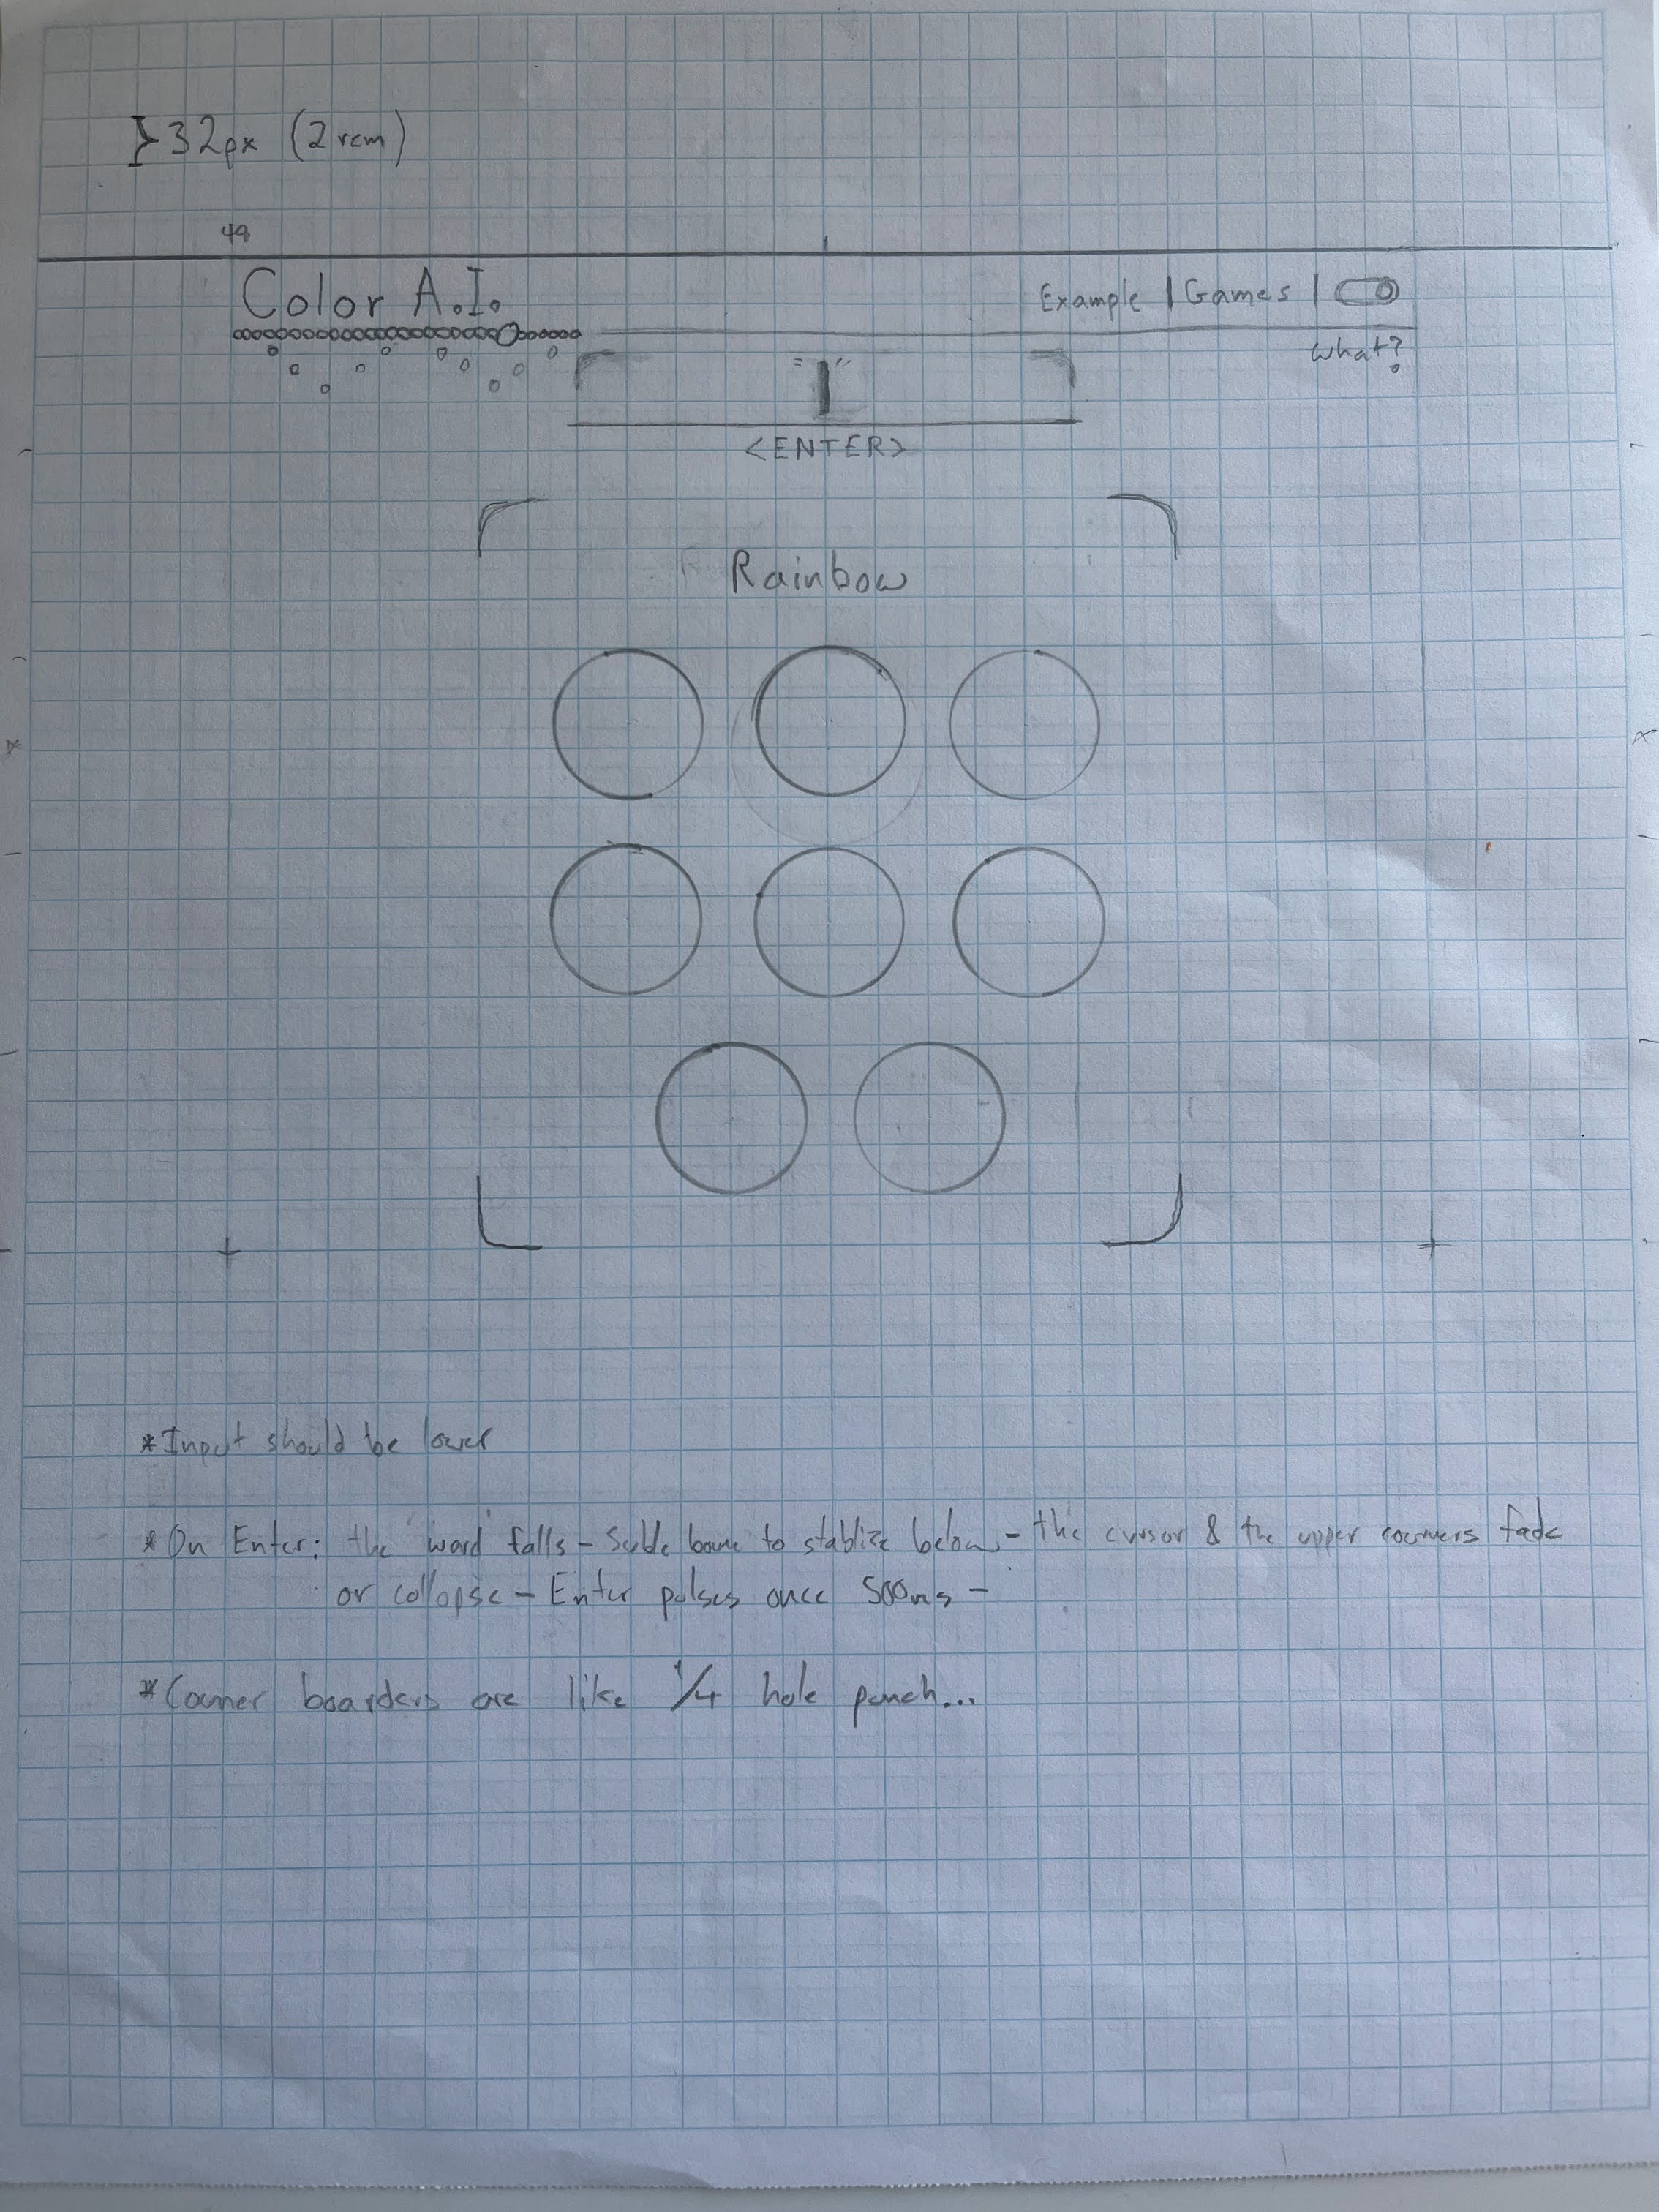 32px (2 rem)
48
Color A.I.
Example | Games |
what?
" I "
<ENTER>
Rainbow
*Input should be lower
*On Enter: the "word" falls - to stablize below - the cursor & the upper fade
or collapse - Enter pulses once 500ms -
*Corner boarders are like 1/4 hole punch...